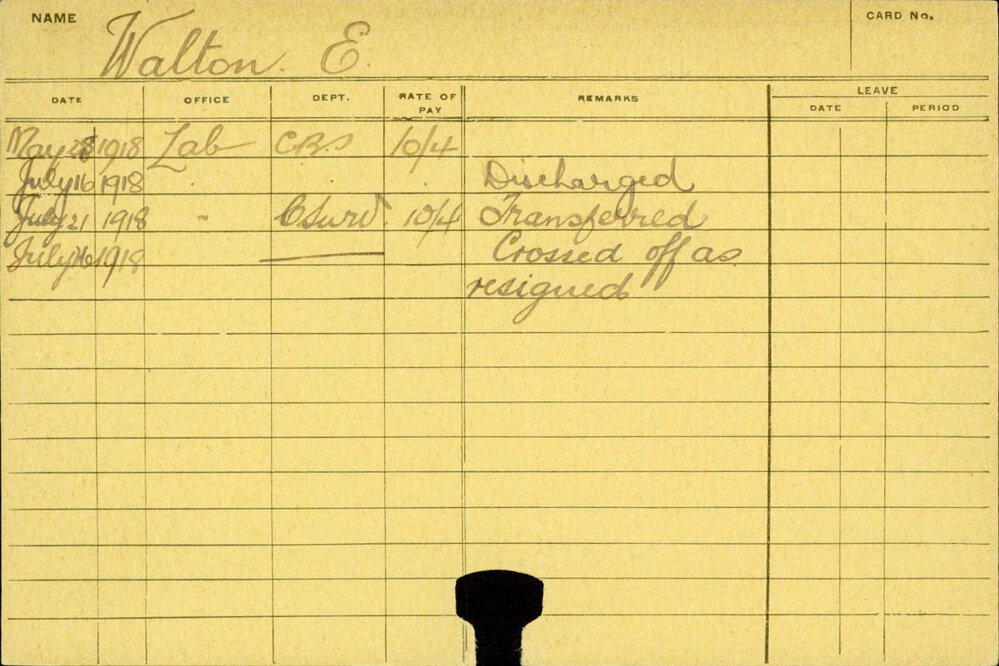 NAME Walton. E. CARD No.
DATE OFFICE DEPT. RATE OF PAY REMARKS LEAVE
DATE PERIOD
May 28 1918 Lab C.R.S 10/4
July 16 1918 Discharged
July 21 1918 " 10/4 Transferred
July 1918 Crossed off as
resigned